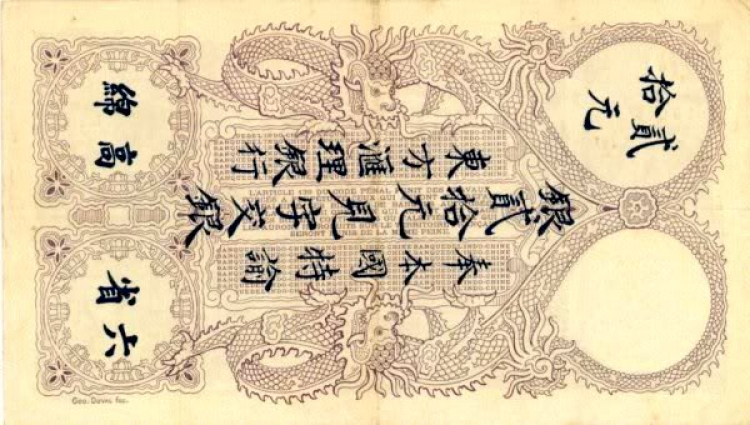 貳拾元
奉本國特諭
銀貳拾元見字交銀
東方滙理銀行
六省
高綿
L'ARTICLE 139 DU CODE PÉNAL
SERONT PUNIS DE LA MÊME PEINE.
Geo. Duval fec.